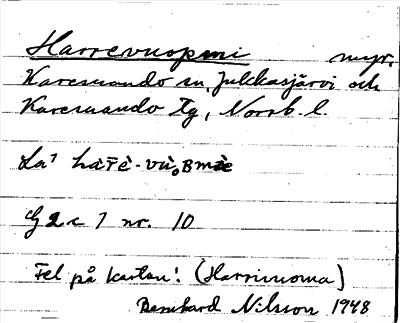 Harrevuopmi myr.
Karesuando sn, Jukkasjärvi och
Karesuando tg, Norrb. l.
La⁷
G 2 c 7 nr. 10
Fel på kartan! (Harrivuoma)
Bernhard Nilsson 1948